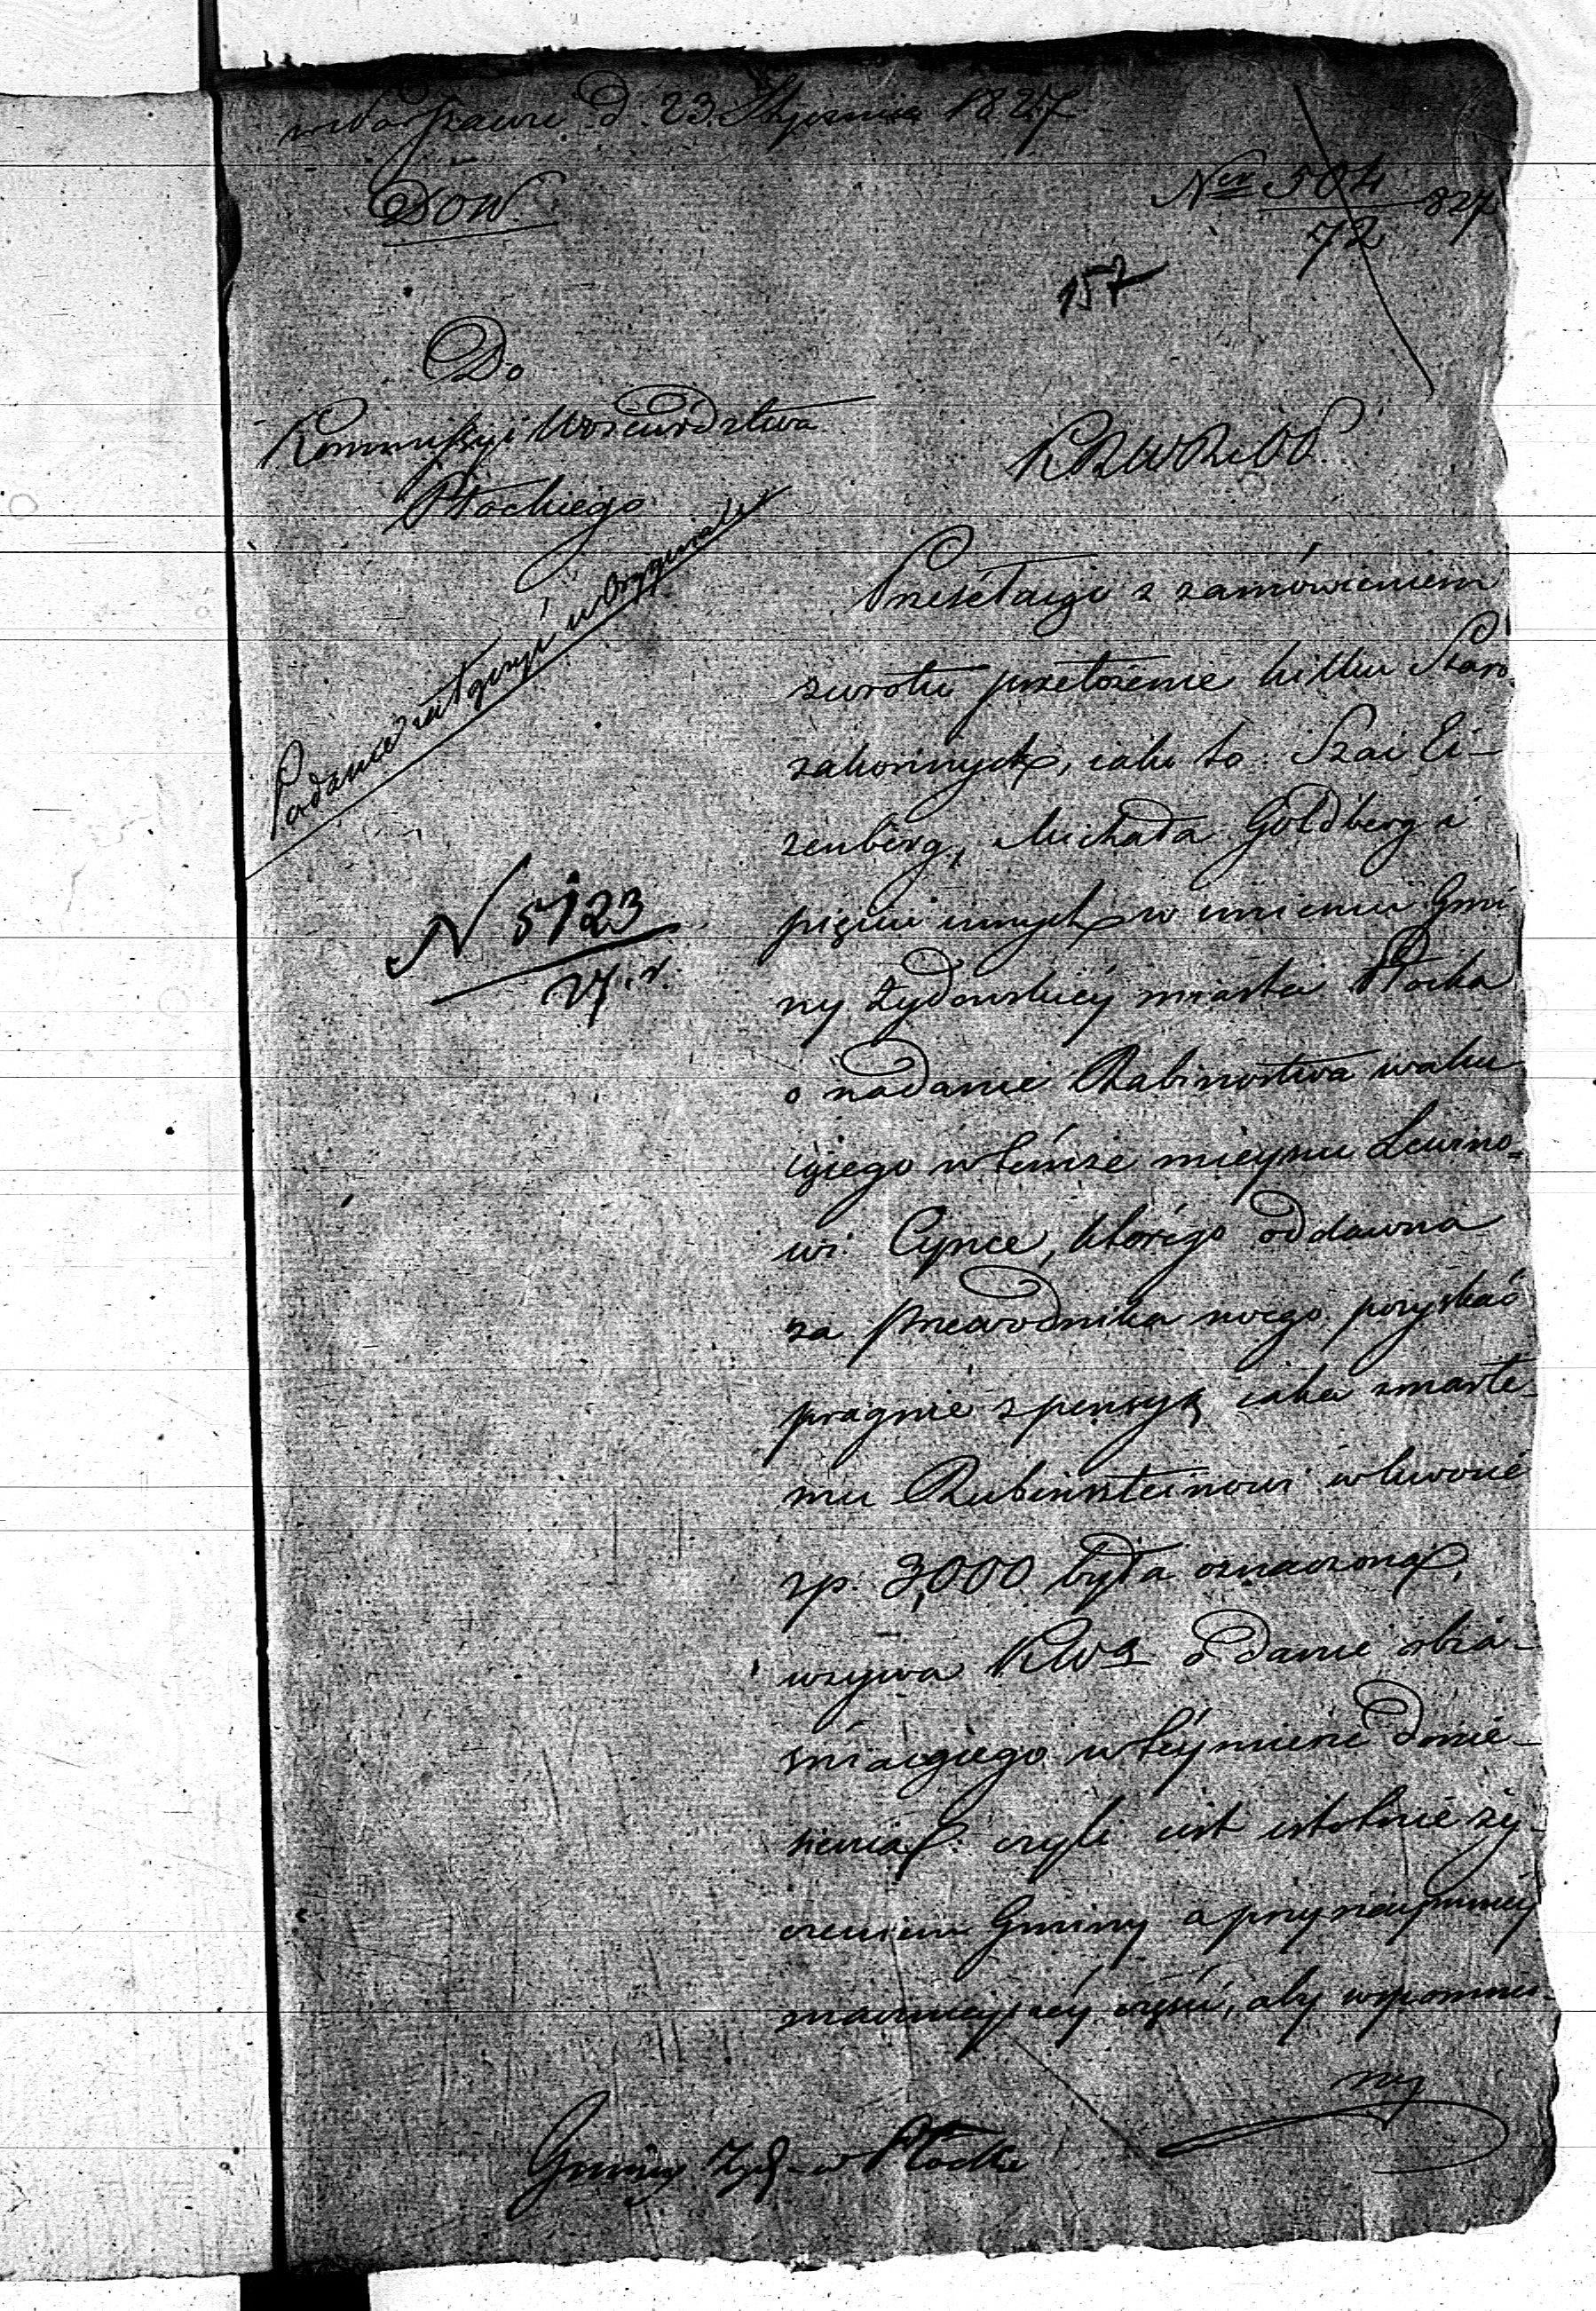 w Warszawie d. 23. Stycznia 1827
DOW.
Ner 504
72 827
157
Do
Kommissyi Woiewództwa
Płockiego
KRWRiOP
Podanie załączyć w Oryginale
N 5123
27. r.
Przesełaiąc z zamówieniem
zwrotu przełożenie kilku Staro-
zakonnych, iako to: Szai Ei-
zenberg, Michała Goldberg i
pięciu innych w imieniu Gmi
ny Żydowskiey miasta Płocka
o nadanie Rabinostwa waku
iącego w témże mieyscu Lewino=
wi Cynce, którego oddawna
za przewodnika swego pozyskać
pragnie z pensyą iaka zmarłe-
mu Rubinsteinowi w kwocie
zp. 3,000 była oznaczoną,
wzywa KWą o danie obia-
śniaiącego w téymierze donie-
sienia: czyli iest istotnie ży-
czeniem Gminy a przynaymniéy
znacznieyszéy części, aby wspomnio-
ny
Gminy Żyd. w Płocku